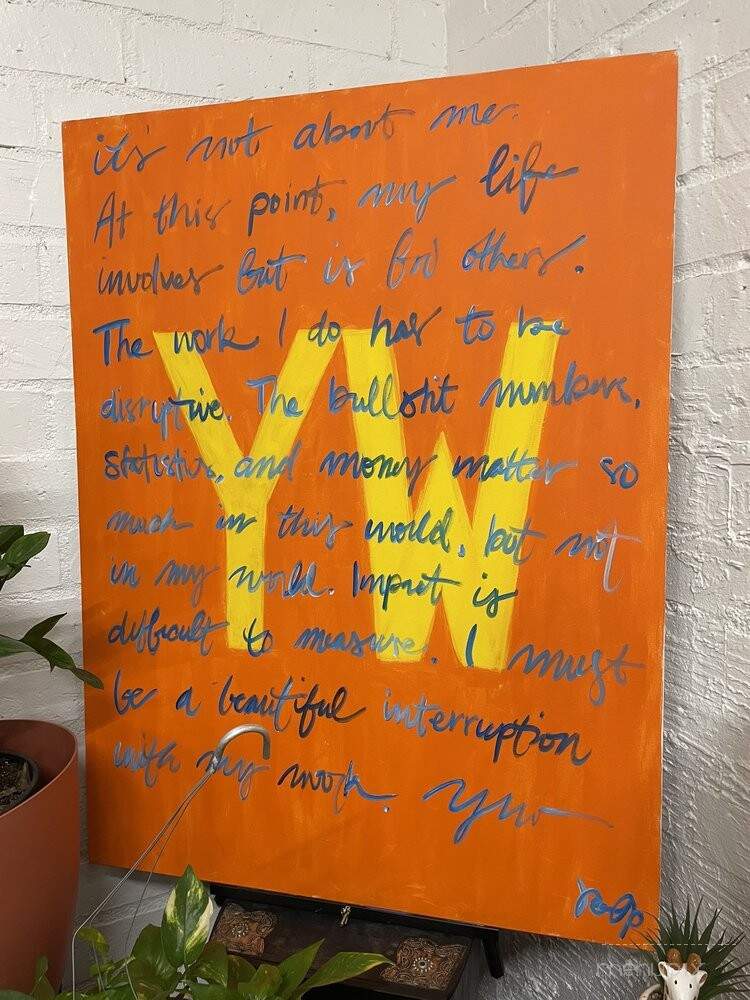 it's not about me.
At this point, my life
involves but is for others.
The work I do has to be
disruptive. The bullshit numbers,
statistics, and money matter so
much in this world, but not
in my world. Impact is
difficult to measure. I must
be a beautiful interruption
with my work. YW
YW